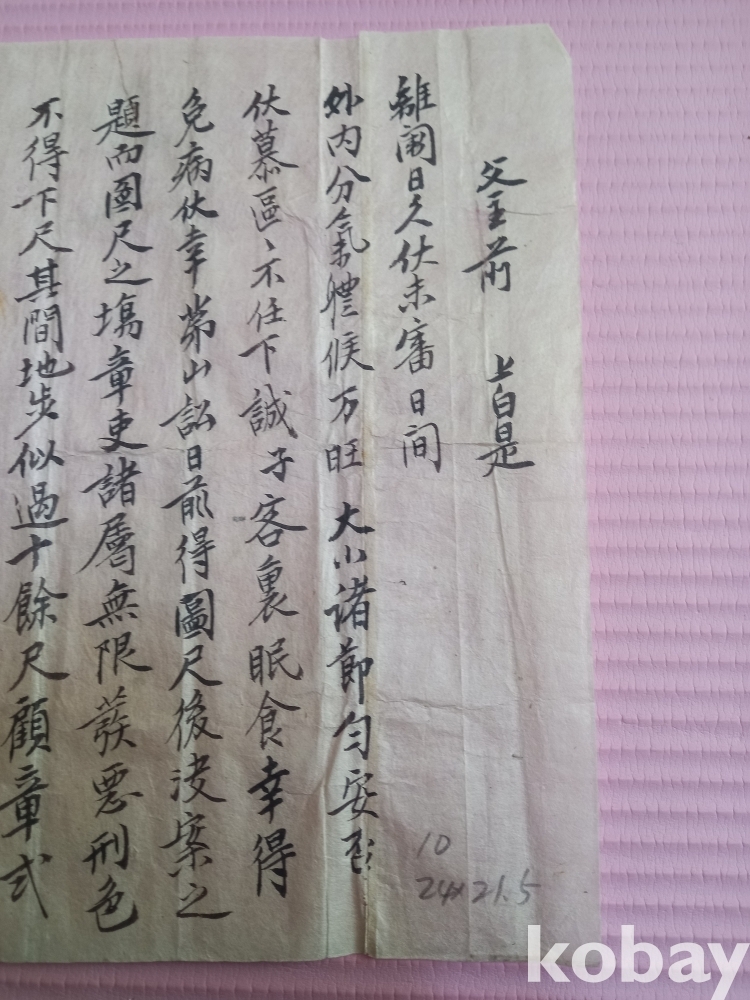 父主前 上白是
離闕日久伏未審日间
外内分氣體候万旺 大小诸節匀安
伏慕區〻不任下誠子客裏眠食幸得
免病伏幸第山訟日前得圖尺後決案之
題而圖尺之塲章吏諸屬無限發惡刑色
不得下尺其間地步似過十餘尺顧章式
10
24×21.5
kobay